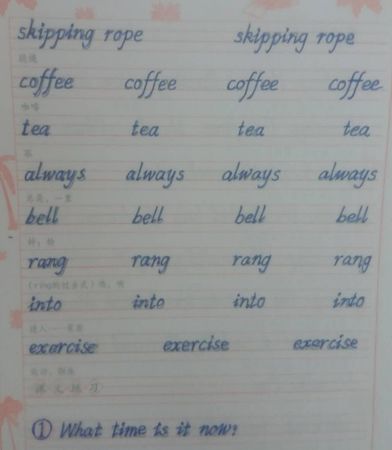 skipping rope skipping rope
跳绳
coffee coffee coffee coffee
咖啡
tea tea tea tea
茶
always always always always
总是，一直
bell bell bell bell
铃；钟
rang rang rang rang
(ring的过去式)响，响
into into into into
exercise exercise exercise exercise
课文练习
① What time is it now?